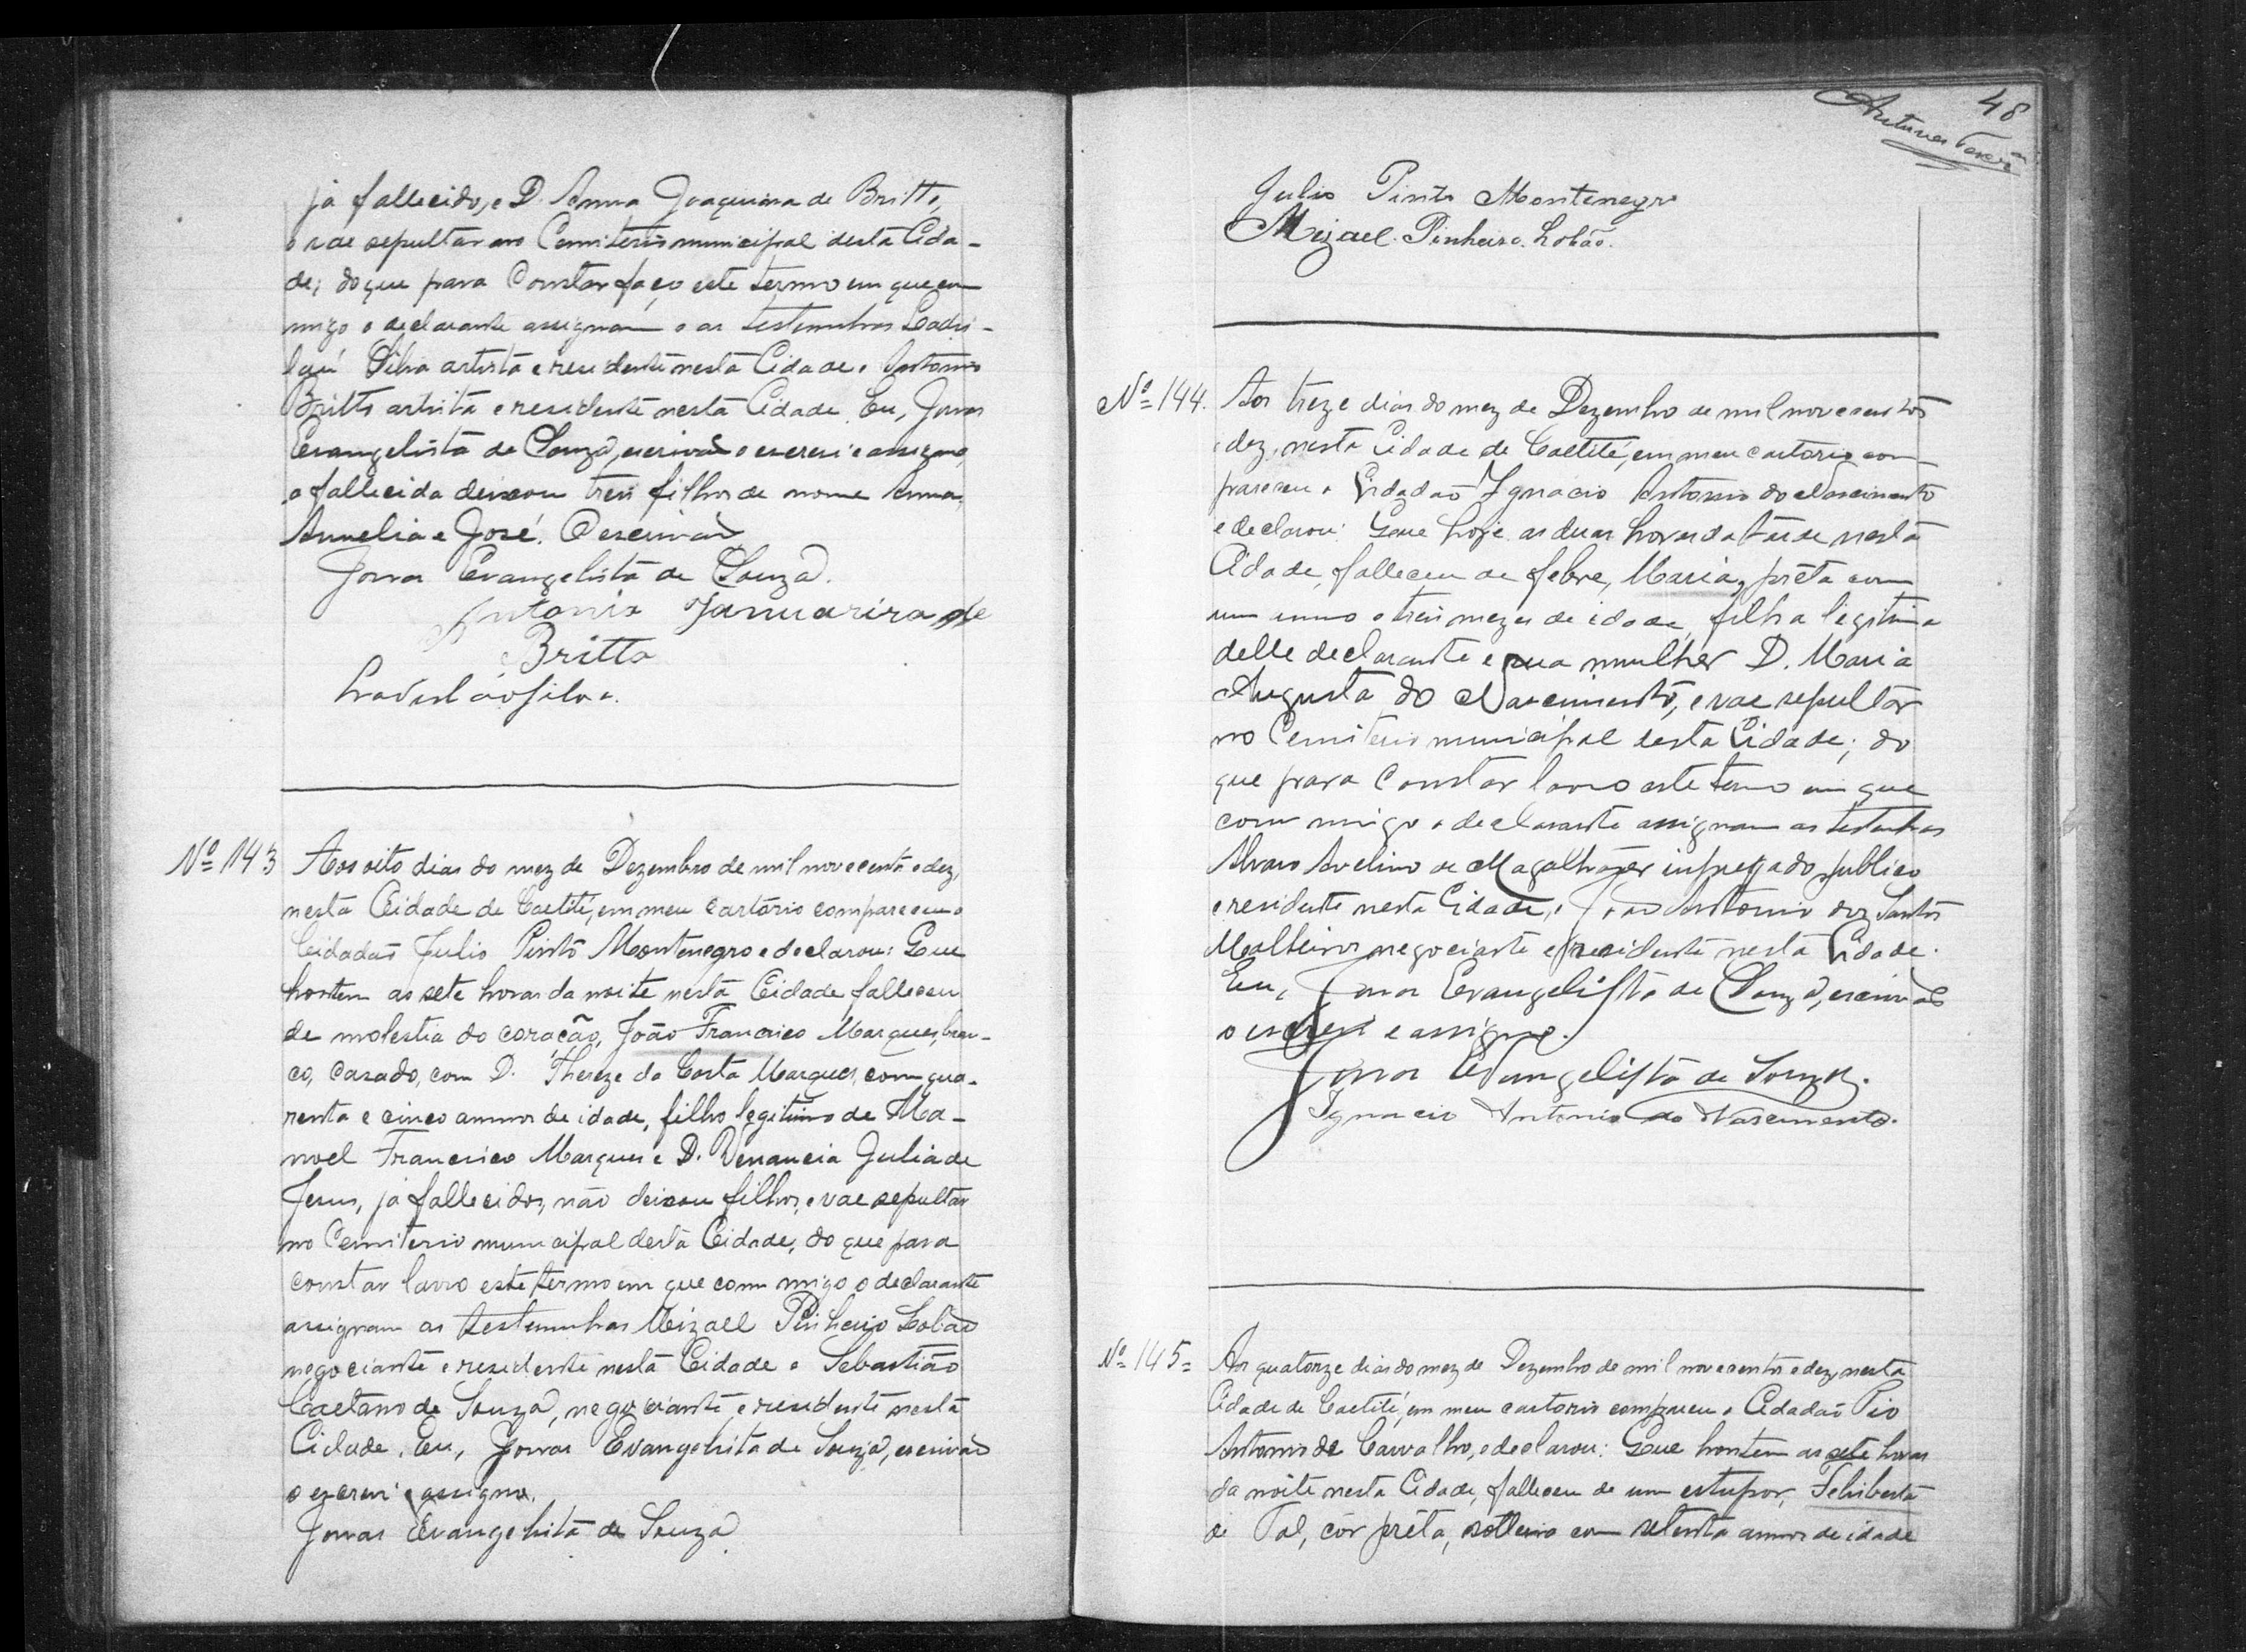 já fallecido, e D. Anna Joaquina de Britto,
e vae sepultar no Cemiterio municipal desta Cida-
de; do que para Constar faço este termo em que com
migo o declarante assignam e as testemunhas Ladis-
lau Silva artista e residente nesta Cidade e Antonio
Britto artista e residente nesta Cidade. Eu, Jonas
Evangelista de Souza, escrivão o escrevi e assigno,
a fallecida deixou tres filhos de nome Anna,
Aurelia e José. O escrivão
Jonas Evangelista de Souza.
Antonio Januario de
Britto
Ladisláo Silva.
Nº 143 Aos oito dias do mez de Dezembro de mil novecento e dez,
nesta Cidade de Caetité, em meu cartório compareceu o
Cidadão Julio Pinto Montenegro e declarou: Que
hontem as sete horas da noite nesta Cidade falleceu
de molestia do coração, João Francisco Marques, bran-
co, casado, com D. Thereze da Costa Marques, com qua-
renta e cinco annos de idade, filho legitimo de Ma-
noel Francisco Marques e D. Venancia Julia de
Jesus, já fallecidos, não deixou filhos, e vae sepultar
no Cemiterio municipal desta Cidade, do que para
constar lavro este termo em que com migo o declarante
assignam as testemunhas Mizael Pinheiro Lobão
negociante e residente nesta Cidade e Sebastião
Caetano de Souza, negociante e residente nesta
Cidade. Eu, Jonas Evangelista de Souza, escrivão
o escrevi e assigno.
Jonas Evangelista de Souza
48
Antunes
Julio Pinto Montenegro
Mizael Pinheiro Lobão.
Nº 144. Aos treze dias do mez de Dezembro de mil novecentos
e dez, nesta Cidade de Caetité, em meu cartorio com
pareceu o Cidadão Ignacio Antonio do Nascimento
e declarou: Que hoje as duas horas da tarde nesta
Cidade, falleceu de febre, Maria, prêta com
um anno e tres mezes de idade, filha legitima
delle declarante e sua mulher D. Maria
Augusta do Nascimento, e vae sepultar
no Cemiterio municipal desta Cidade; do
que para Constar lavro este termo em que
com migo o declarante assignam as testemunhas
Alvaro Avelino de Magalhães empregado publico
e residente nesta Cidade, e João Antonio dos Santos
Malheiros negociante e residente nesta Cidade.
Eu, Jonas Evangelista de Souza, escrivão
o escrevi e assigno.
Jonas Evangelista de Souza.
Ignacio Antonio do Nascimento.
Nº 145= Aos quatorze dias do mez de Dezembro de mil novecentos e dez, nesta
Cidade de Caetité, em meu cartorio compareceu o Cidadão Pio
Antonio de Carvalho, e declarou: Que hontem as sete horas
da noite nesta Cidade, falleceu de um estupor, Felisberta
de Tal, côr prêta, solteira com setenta annos de idade